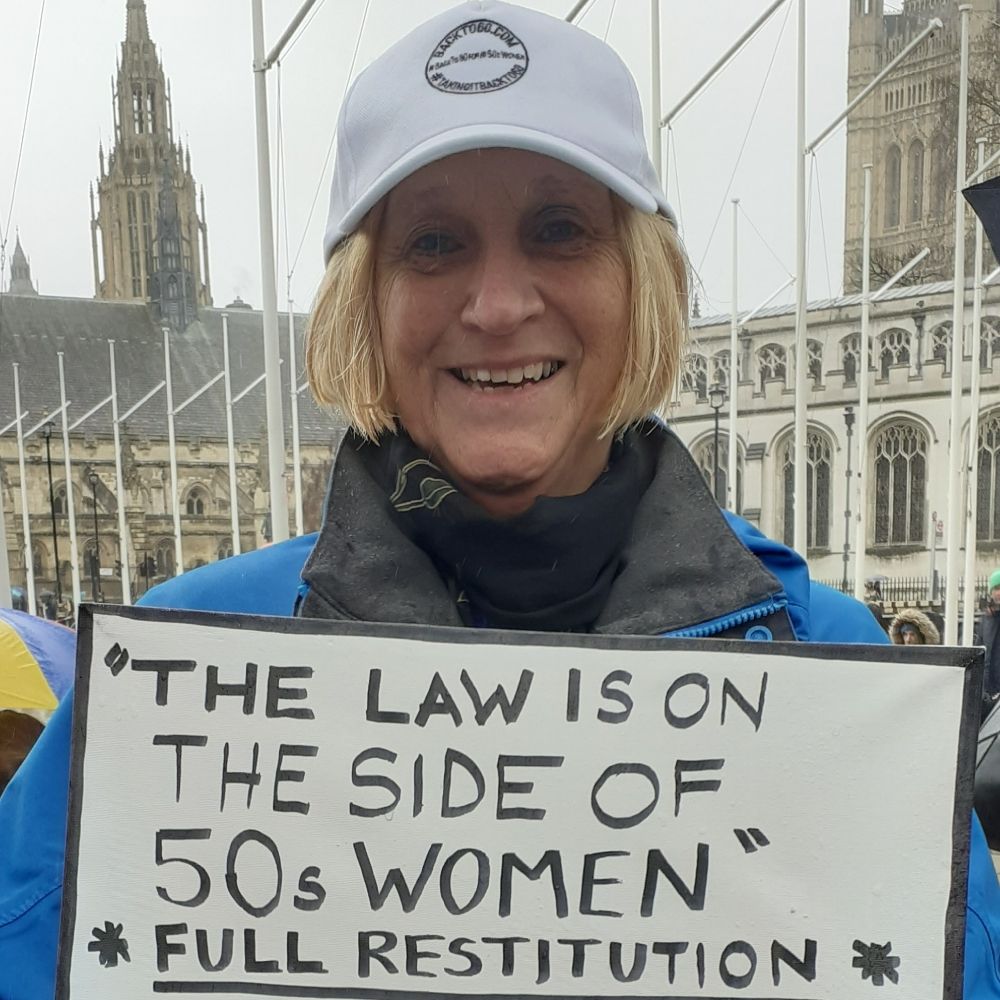 BACKTO60.COM
#BACKTO60FOR50SWOMEN
#TAKINGITBACKTO60
"THE LAW IS ON
THE SIDE OF
50s WOMEN"
* FULL RESTITUTION *